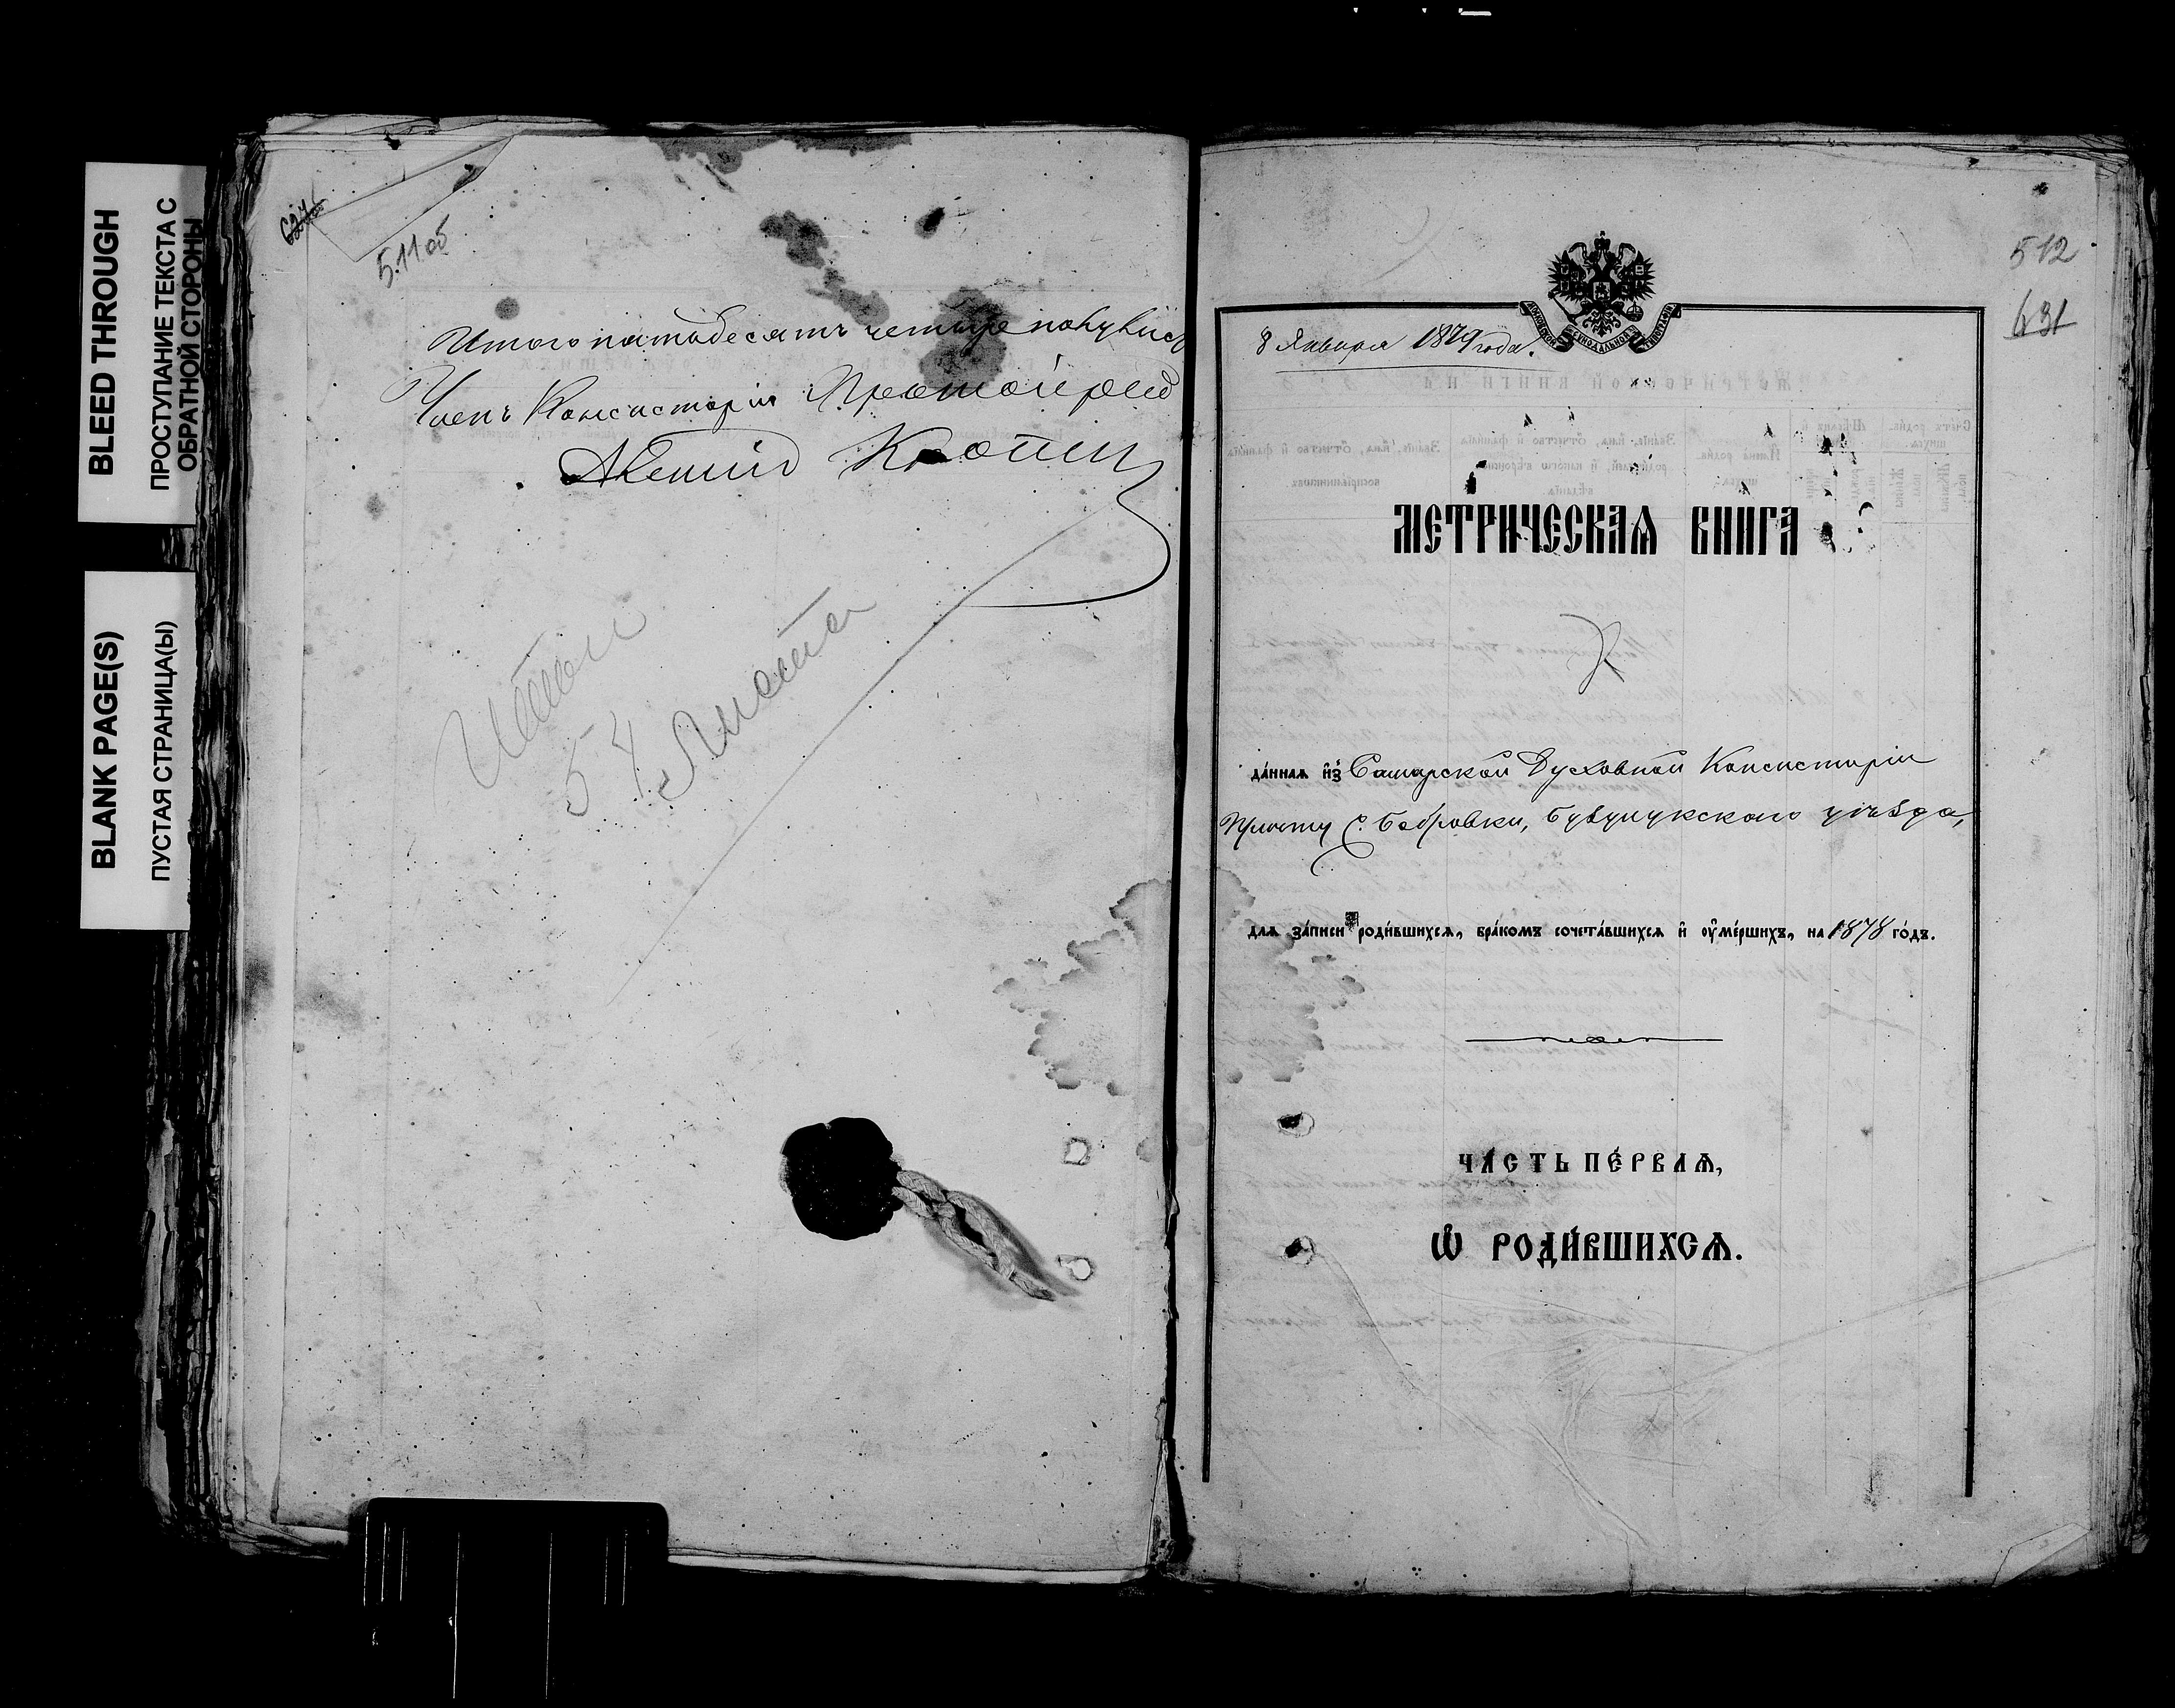 BLEED THROUGH
ПРОСТУПАНИЕ ТЕКСТА С
ОБРАТНОЙ СТОРОНЫ
BLANK PAGE(S)
ПУСТАЯ СТРАНИЦА(Ы)
511об
Итого пятьдесятъ четыре
Членъ Консисторіи Протоіерей
Итого
54 листа
512
631
8 Января 1879 года.
МЕТРИЧЕСКАѦ КНИГА
да́ннаѧ и҆з̾ Самарской Духовной Консисторіи
Причту с. Бобровки, Бузулукскаго уѣзда,
длѧ за́писи роди́вшихсѧ, бра́комъ сочета́вшихсѧ и҆ ᲂу҆ме́ршихъ, на 1878 го́дъ.
ЧА́СТЬ ПЕ́РВАѦ,
Ѡ҆ РОДИ́ВШИХСѦ.